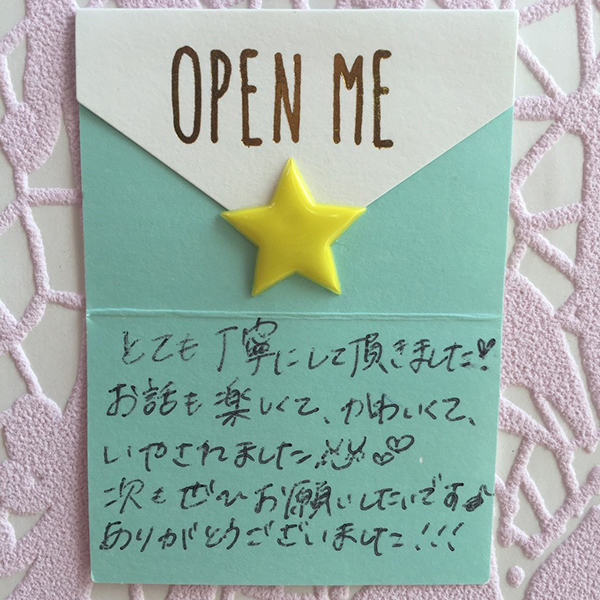 OPEN ME
とても丁寧にして頂きました!
お話も楽しくて、かわいくて、
いやされました♡♡
次もぜひお願いしたいです♪
ありがとうございました!!!